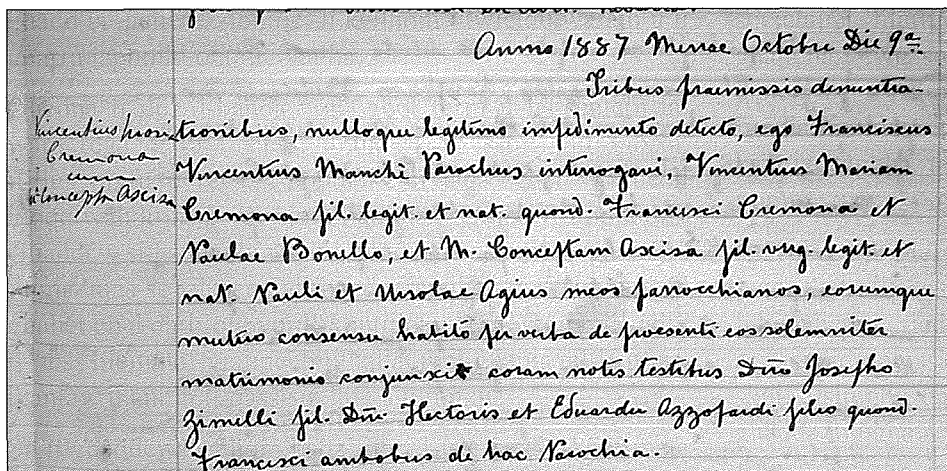 Anno 1887 Mense Octobre Die 9ª
Tribus praemissis denuntia-
Vincentius
Cremona
cum
Concepta Ascisa
tionibus, nulloque legitimo impedimento detecto, ego Franciscus
Vincentius Manchè Parochus interrogavi, Vincentius Mariam
Cremona fil. legit. et nat. quond. Francisci Cremona et
Paulae Bonello, et M. Conceptam Ascisa fil. virg. legit. et
nat. Pauli et Ursolae Agius meos parrocchianos, eorumque
mutuo consensu habito per verba de praesenti eos solemniter
matrimonio conjunxi coram notis testibus Dño Josepho
Zimelli fil. Dñi Hectoris et Eduardu Azzopardi filio quond.
Francisci ambobus de hac Parochia.